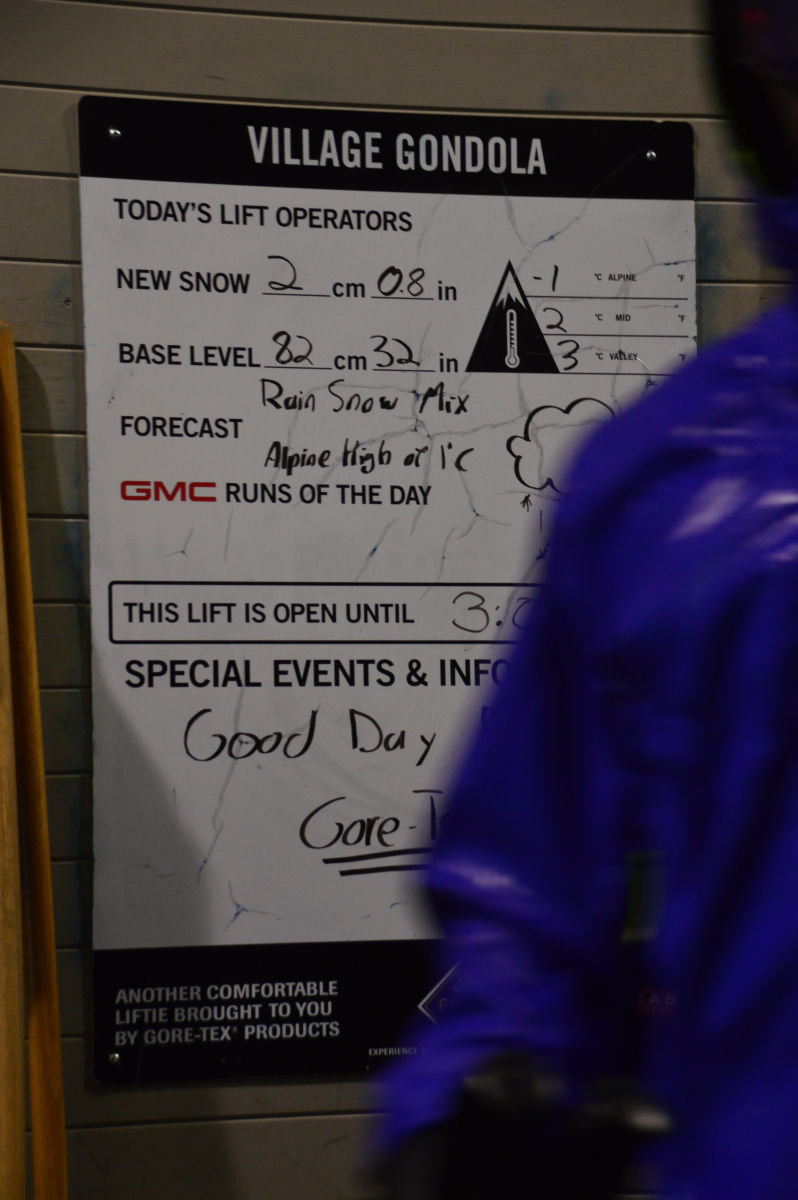 VILLAGE GONDOLA
TODAY'S LIFT OPERATORS
NEW SNOW 2 cm 0.8 in
-1 °C ALPINE °F
2 °C MID °F
BASE LEVEL 82 cm 32 in
3 °C VALLEY °F
Rain Snow Mix
FORECAST
Alpine High of 1°C
GMC RUNS OF THE DAY
THIS LIFT IS OPEN UNTIL 3:
SPECIAL EVENTS & INFO
Good Day
Gore-T
ANOTHER COMFORTABLE
LIFTIE BROUGHT TO YOU
BY GORE-TEX® PRODUCTS
EXPERIENCE